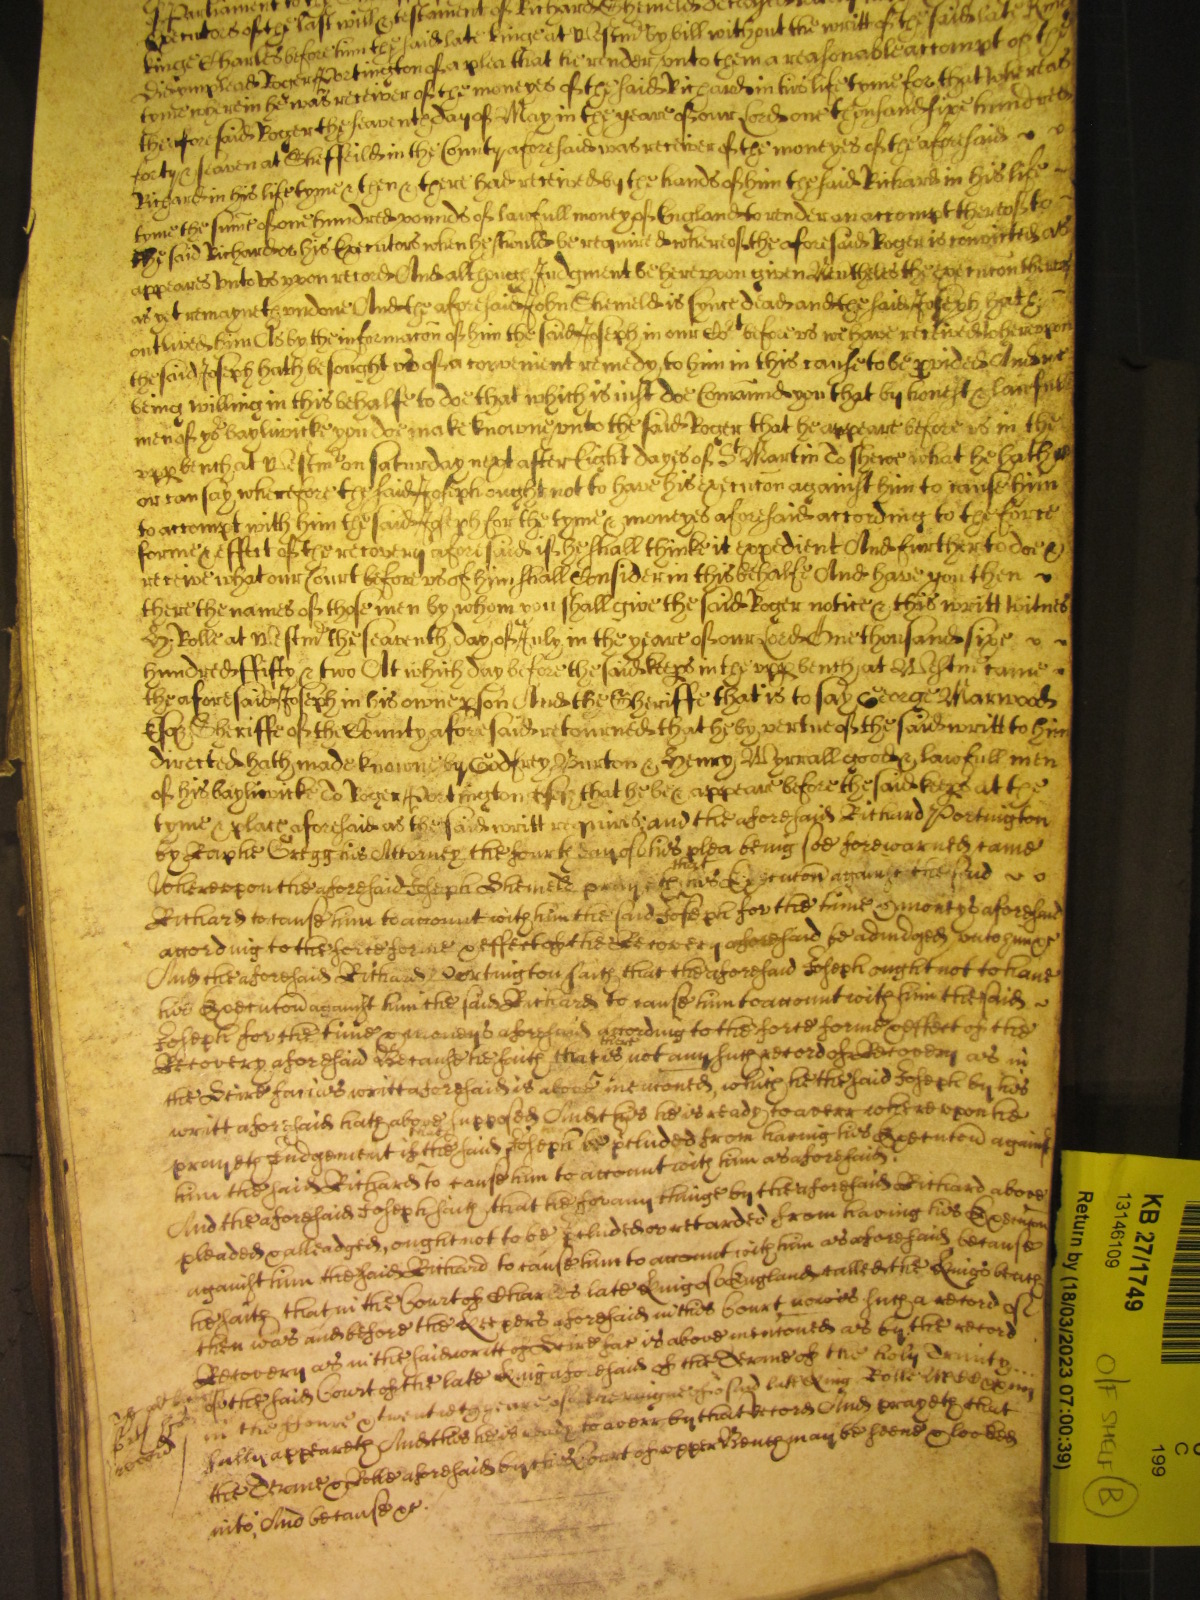 Executors of the last will & testament of Richard Shemeld deceased
kinge Charles before him the said late kinge at Westmr by bill without the writt of the said late Kinge
Roger Portington of a plea that he render unto them a reasonable accompt of the
tyme wherein he was receiver of the moneyes of the said Richard in his life tyme for that whereas
the aforesaid Roger the seaventh day of May in the yeare of our Lord one thousand sixe hundred
forty & seaven at Sheffeild in the County aforesaid was receiver of the moneyes of the aforesaid
Richard in his life tyme & then & there had received by the hands of him the said Richard in his life
tyme the sume of one hundred pounds of lawfull money of England to render an accompt thereof to
the said Richard or his Executors when he should be required whereof the aforesaid Roger is convicted as
appeares unto us upon record And although Judgment be hereupon given Neverthelesse the execucon thereof
as yet remayneth undone And the aforesaid John Shemeld is synce dead and the said Joseph hath
outlived him As by the informacon of him the said Joseph in our Cort before us we have received whereupon
the said Joseph hath besought us of a convenient remedy to him in this cause to be pvided And we
being willing in this behalfe to doe that which is iust doe Comaund you that by honest & lawfull
men of yor bayliwicke you doe make knowne unto the said Roger that he appeare before us in the
upp bench at Westmr on saturday next after Eight dayes of St Martin To shewe what he hath
or can say wherefore the said Joseph ought not to have his execucon against him to cause him
to accompt with him the said Joseph for the tyme & moneyes aforesaid according to the force
forme & effect of the recovery aforesaid if he shall thinke it expedient And further to doe &
receive what our Court before us of him shall Consider in this behalfe And have you then
there the names of those men by whom you shall give the said Roger notice & this writt witnes
H Rolle at Westmr the seaventh day of July in the yeare of our Lord One thousand sixe
hundred ffifty & two At which day before the said keeps in the upp bench at Westmr came
the aforesaid Joseph in his owne pson And the Sheriffe that is to say George Marwood
Esqr Sheriffe of the County aforesaid retourned that he by vertue of the said writt to him
directed hath made knowne by Godfrey Burton & Henry Wyrrall good & lawfull men
of his bayliwicke To Roger Portington Esqr that he be & appeare before the said keeps at the
tyme & place aforesaid as the said writt requires and the aforesaid Richard Portington
by Raphe Gregg his Attorney the fourth day of this plea being soe forewarned came
Whereupon the aforesaid Joseph Shemeld prayeth that his Execucon against the said
Richard to cause him to account with him the said Joseph for the time & moneys aforesaid
according to the force forme & effect of the Recovery aforesaid be adiudged unto him &c
And the aforesaid Richard Portington saith that the aforesaid Joseph ought not to have
his Execucon against him the said Richard to cause him to account with him the said
Joseph for the time & moneys aforesaid according to the force forme & effect of the
Recovery aforesaid Because he saith that there is not any such record of Recovery as in
the Scire facias writt aforesaid is above mencioned, which he the said Joseph by his
writt aforesaid hath above supposed And this he is ready to averr whereupon he
prayeth Judgement if the said Joseph be pcluded from having his Execucon against
him the said Richard to cause him to account with him as aforesaid.
And the aforesaid Joseph saith that he for any thinge by the aforesaid Richard above
pleaded & alleadged, ought not to be pcluded or retarded from having his Execucon
against him the said Richard to cause him to account with him as aforesaid, because
he saith that in the Court of Charles late King of England called the Kings bench
then was and before the Keepers aforesaid in this Court now is such a record of
Recovery as in the said writt of Scire fac is above mencioned as by the record
of the said Court of the late King aforesaid of the Terme of the holy Trinity
in the & twentieth yeare of the raigne of the said late King Rolle
fully appeareth And this he is ready to averr by that record And prayeth that
the Terme & Rolle aforesaid by the Court of upper Bench may be seene & looked
into, And because &c.
record
KB 27/1749
13146109
Return by (18/03/2023 07:00:39)
O/F SHELF B
C
199